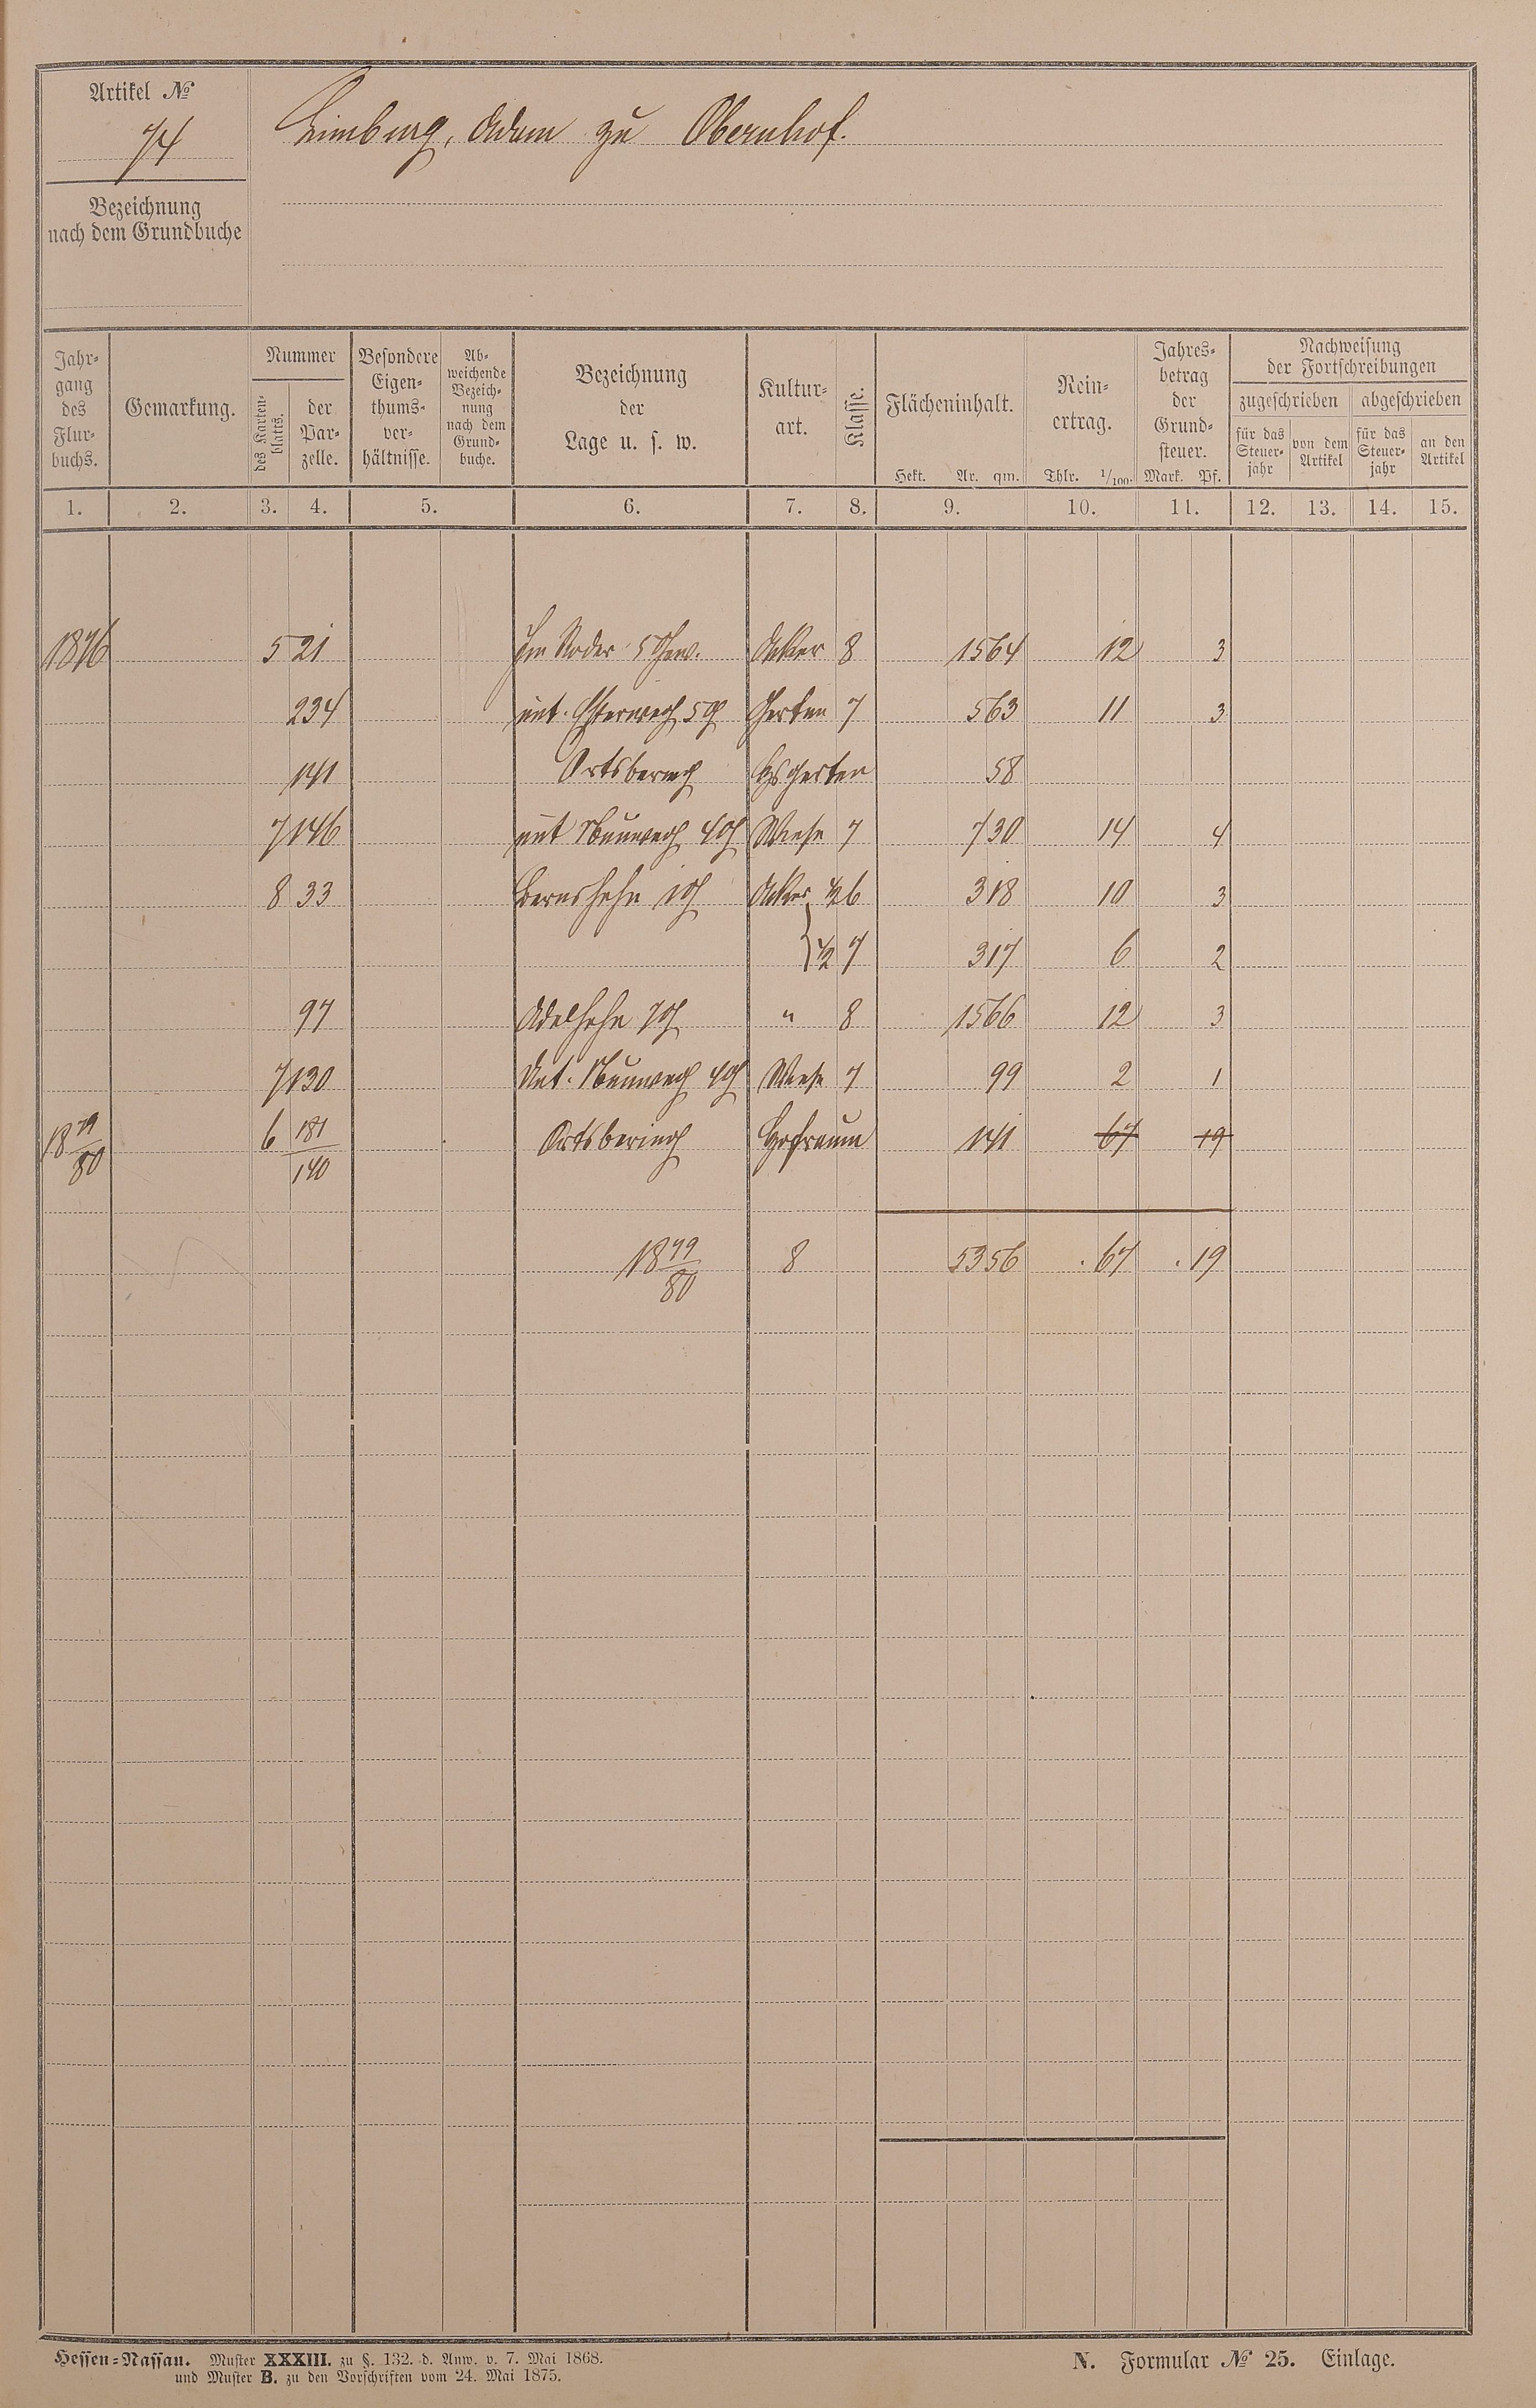 Artikel №
74
Bezeichnung
nach dem Grundbuche
Limburg, Adam zu Obernhof.
Jahr-
gang
des
Flur-
buchs.
Gemarkung.
Nummer
des Karten-
blatts.
der
Par-
zelle.
Besondere
Eigen-
thums-
ver-
hältnisse.
Ab-
weichende
Bezeich-
nung
nach dem
Grund-
buche.
Bezeichnung
der
Lage u. s. w.
Kultur-
art.
Klasse.
Flächeninhalt.
Hekt. Ar. qm.
Rein-
ertrag.
Thlr. 1/100.
Jahres-
betrag
der
Grund-
steuer.
Mark. Pf.
Nachweisung
der Fortschreibungen
zugeschrieben abgeschrieben
für das
Steuer-
jahr
von dem
Artikel
für das
Steuer-
jahr
an den
Artikel
1. 2. 3. 4. 5. 6. 7. 8. 9. 10. 11. 12. 13. 14. 15.
1876 5 21 Im Roder 5 Gew. Acker 8 1564 12 3
234 unt. 5 G Garten 7 563 11 3
141 Ortsbering Hsgarten 58
7 146 unt Neuweg 4 G Wiese 7 730 14 4
8 33 1 G Acker 1/2 6 318 10 3
1/2 7 317 6 2
97 7 G " 8 1566 12 3
7 130 Unt. Neuweg 4 G Wiese 7 99 2 1
18 79/80 6 181/140 Ortsbering Hofraum 141 67 19
18 79/80 8 5356 . 67 . 19
Hessen-Nassau. Muster XXXIII. zu §. 132. d. Anw. v. 7. Mai 1868.
und Muster B. zu den Vorschriften vom 24. Mai 1875.
N. Formular № 25. Einlage.